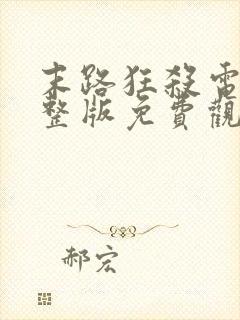 末路狂殺電
整版免費觀
郝宏